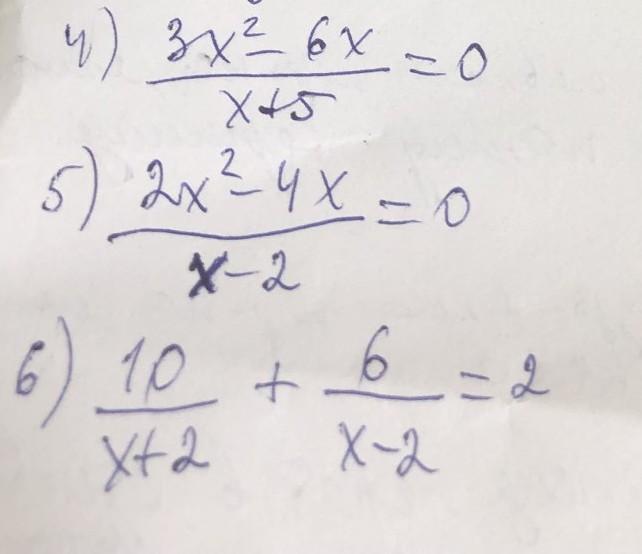 4) (3x² - 6x)/(x+5) = 0
5) (2x² - 4x)/(x-2) = 0
6) 10/(x+2) + 6/(x-2) = 2